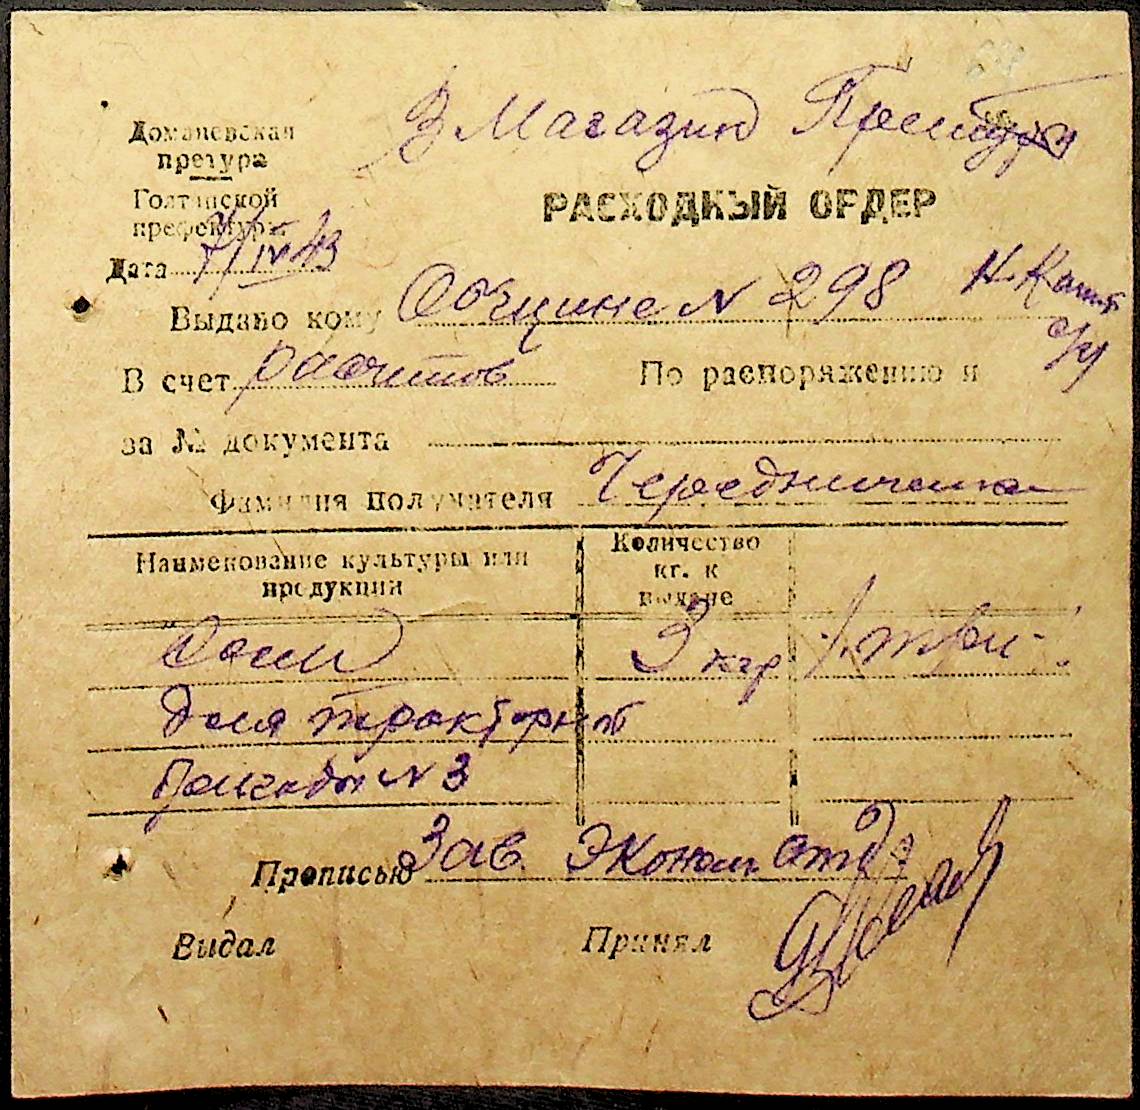 З Магазин Претуры
Доманевская
претура
Голтинской
префектуры
РАСХОДНЫЙ ОРДЕР
Дата 7/IV 43
Выдано кому Общине N 298
В счет расчетов По распоряжению и
за № документа
Фамилия получателя Чередниченко
Наименование культуры или
продукции
Количество
кг. к
выдаче
Соли 3 кгр. /. три.
для тракторной
бригады N 3
Прописью Зав. Эконом. отд
Выдал Принял